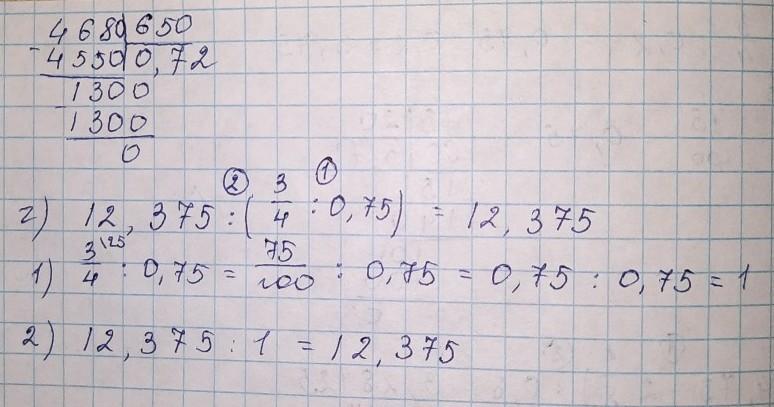 4680 650
- 4550 0,72
- 1300
1300
0
② ①
г) 12,375 : ( 3/4 : 0,75) = 12,375
1) 3/4 \25 : 0,75 = 75/100 : 0,75 = 0,75 : 0,75 = 1
2) 12,375 : 1 = 12,375